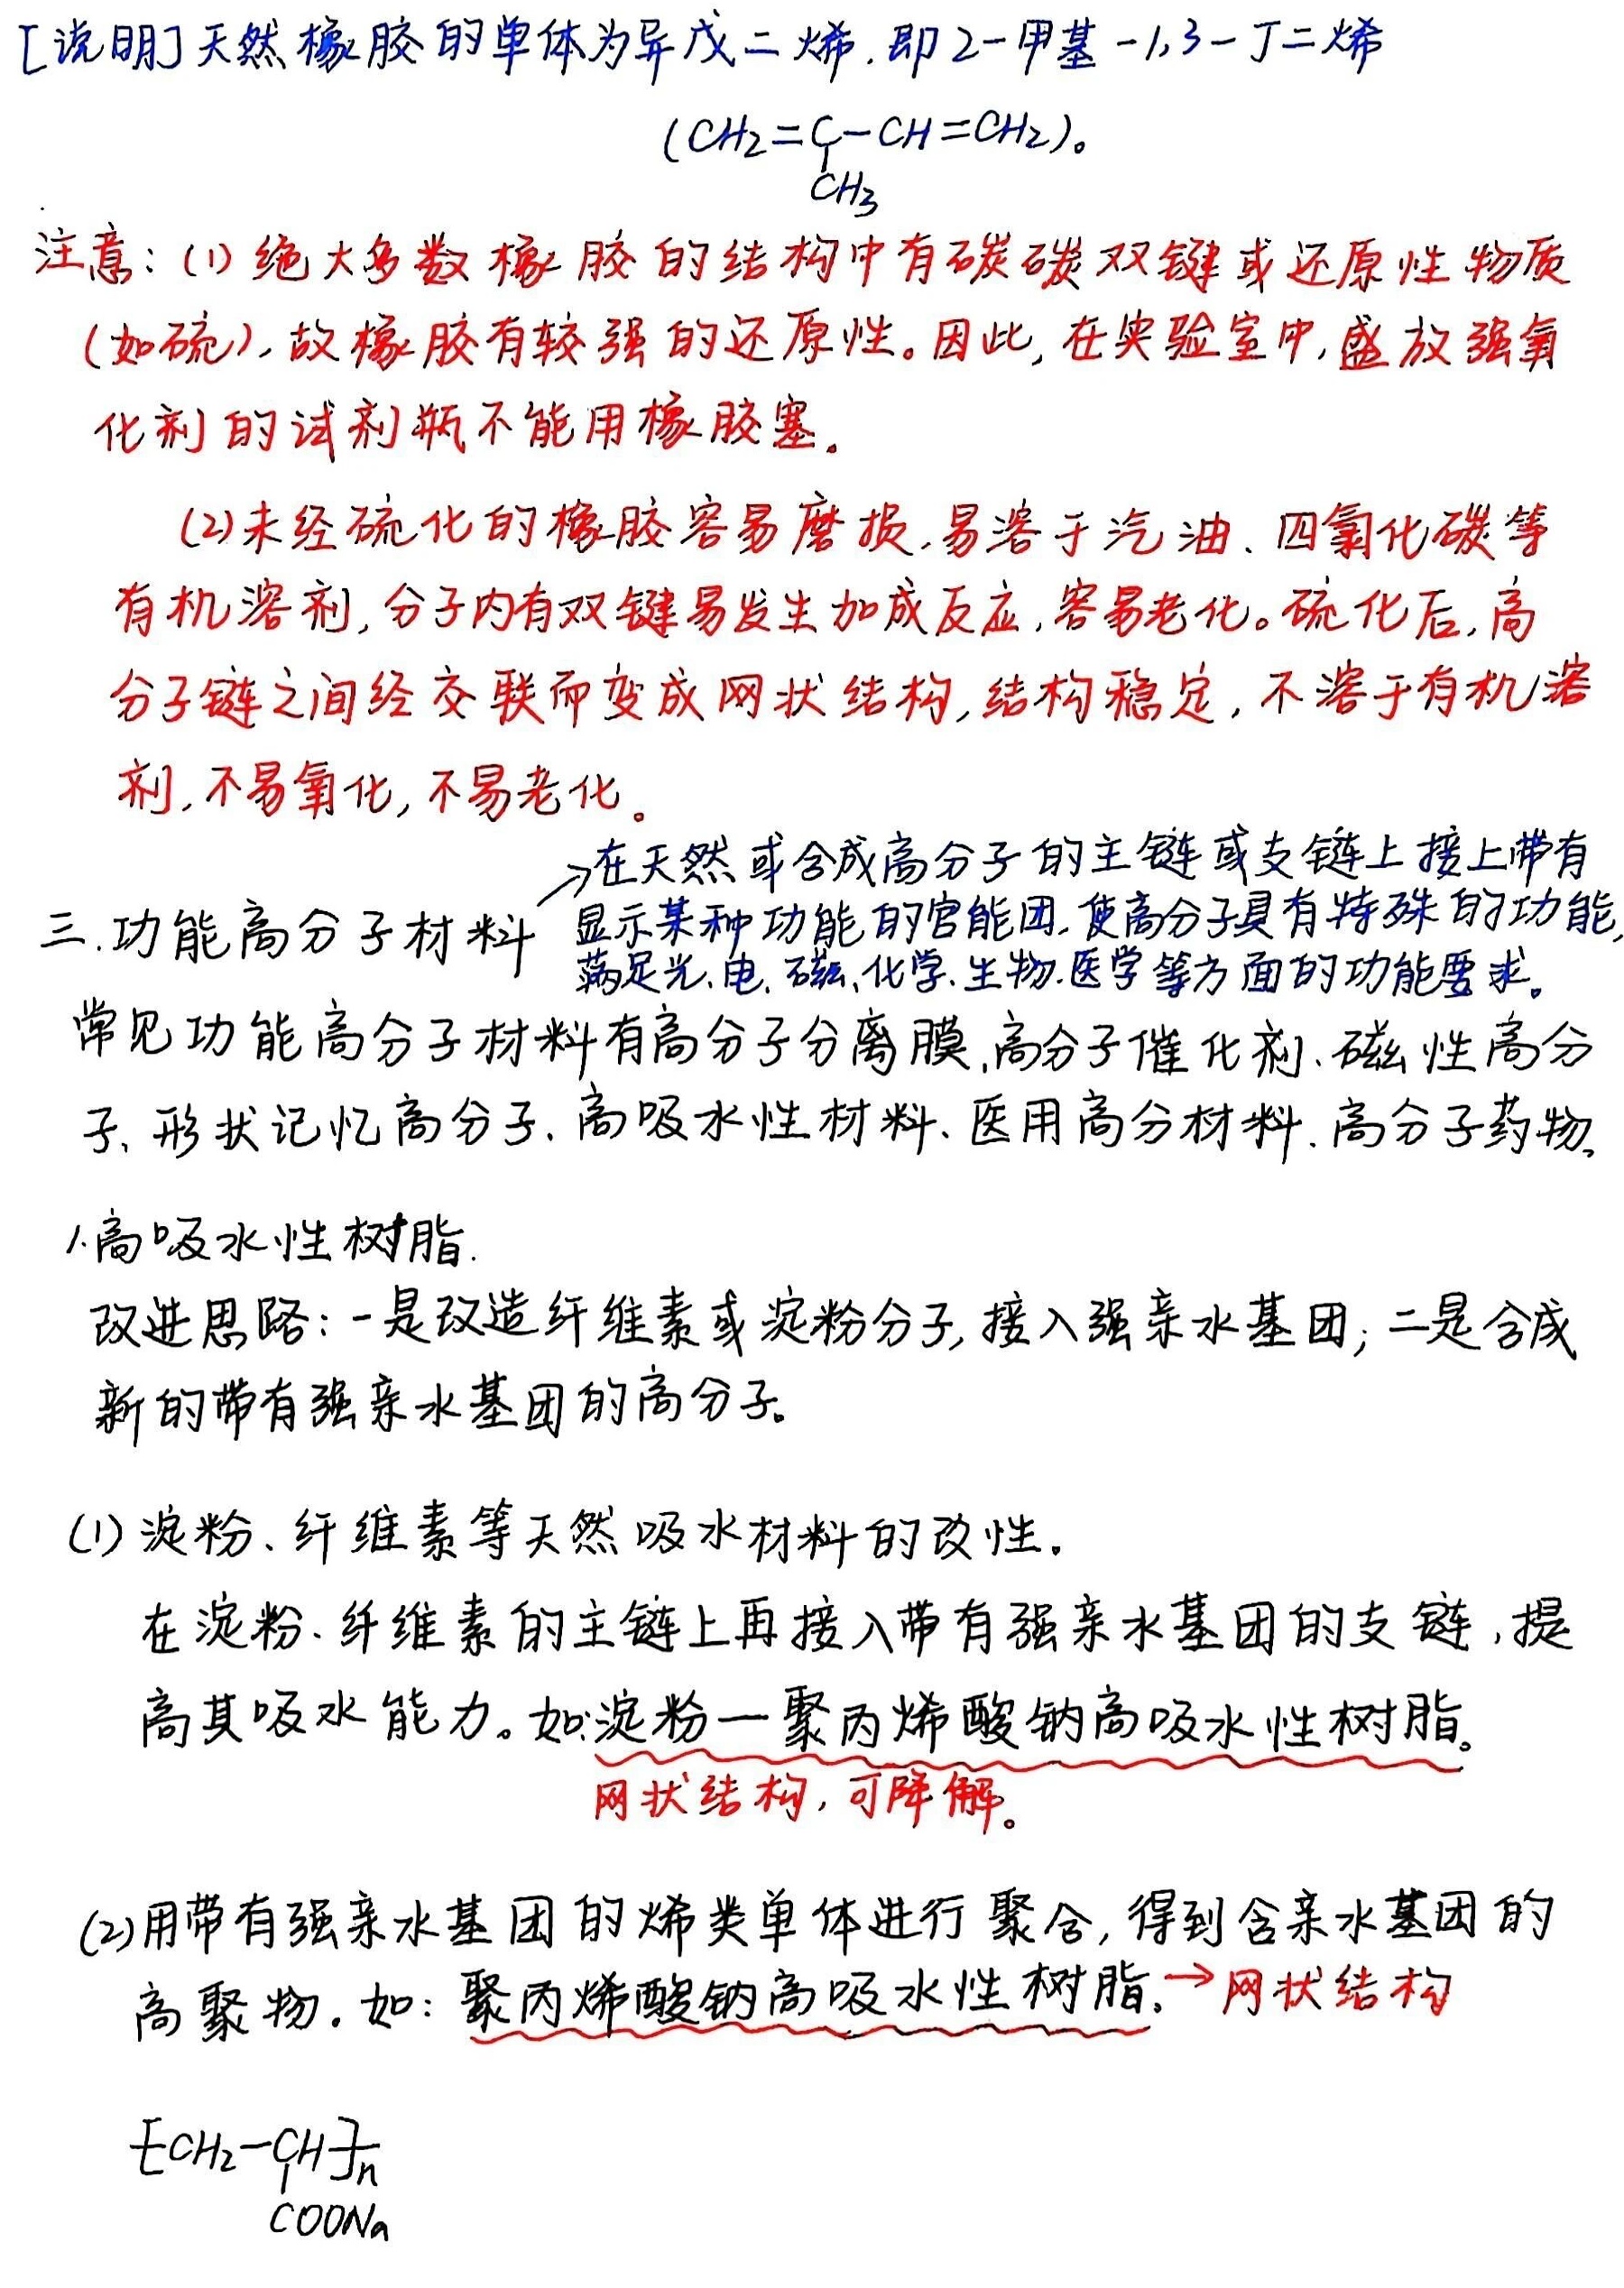 [说明]天然橡胶的单体为异戊二烯.即2-甲基-1,3-丁二烯
(CH₂=C-CH=CH₂)。
CH₃
注意：(1)绝大多数橡胶的结构中有碳碳双键或还原性物质
(如硫),故橡胶有较强的还原性。因此,在实验室中,盛放强氧
化剂的试剂瓶不能用橡胶塞。
(2)未经硫化的橡胶容易磨损.易溶于汽油、四氯化碳等
有机溶剂,分子内有双键易发生加成反应,容易老化。硫化后,高
分子链之间经交联而变成网状结构,结构稳定,不溶于有机溶
剂,不易氧化,不易老化。
→在天然或合成高分子的主链或支链上接上带有
显示某种功能的官能团,使高分子具有特殊的功能,
满足光、电、磁、化学、生物.医学等方面的功能要求。
三.功能高分子材料
常见功能高分子材料有高分子分离膜、高分子催化剂、磁性高分
子、形状记忆高分子、高吸水性材料、医用高分材料、高分子药物。
1.高吸水性树脂.
改进思路：一是改造纤维素或淀粉分子,接入强亲水基团；二是合成
新的带有强亲水基团的高分子。
(1)淀粉、纤维素等天然吸水材料的改性.
在淀粉、纤维素的主链上再接入带有强亲水基团的支链,提
高其吸水能力。如:淀粉—聚丙烯酸钠高吸水性树脂。
网状结构,可降解。
(2)用带有强亲水基团的烯类单体进行聚合,得到含亲水基团的
高聚物.如：聚丙烯酸钠高吸水性树脂.→网状结构
[CH₂-CH]n
COONa